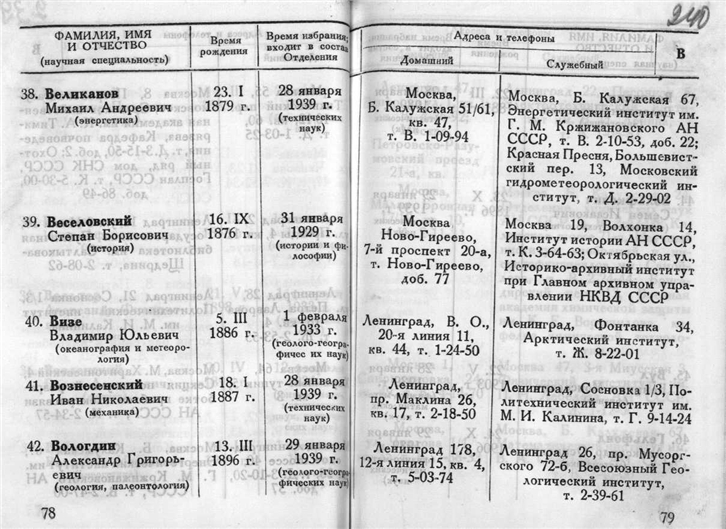 240
ФАМИЛИЯ, ИМЯ
И ОТЧЕСТВО
(научная специальность)
Время
рождения
Время избрания;
входит в состав
Отделения
38. Великанов
Михаил Андреевич
(энергетика)
23. I
1879 г.
28 января
1939 г.
(технических
наук)
39. Веселовский
Степан Борисович
(история)
16. IX
1876 г.
31 января
1929 г.
(истории и фи-
лософии)
40. Визе
Владимир Юльевич
(океанография и метеоро-
логия)
5. III
1886 г.
1 февраля
1933 г.
(геолого-геогра-
фичес их наук)
41. Вознесенский
Иван Николаевич
(механика)
18. I
1887 г.
28 января
1939 г.
(технических
наук)
42. Вологдин
Александр Григорь-
евич
(геология, палеонтология)
13. III
1896 г.
29 января
1939 г.
(геолого-геогра-
фических наук)
78
Адреса и телефоны
Домашний
Служебный
В
Москва,
Б. Калужская 51/61,
кв. 47,
т. В. 1-09-94
Москва, Б. Калужская 67,
Энергетический институт им.
Г. М. Кржижановского АН
СССР, т. В. 2-10-53, доб. 22;
Красная Пресня, Большевист-
ский пер. 13, Московский
гидрометеорологический ин-
ститут, т. Д. 2-29-02
Москва
Ново-Гиреево,
7-й проспект 20-а,
т. Ново-Гиреево,
доб. 77
Москва 19, Волхонка 14,
Институт истории АН СССР,
т. К. 3-64-63; Октябрьская ул.,
Историко-архивный институт
при Главном архивном упра-
влении НКВД СССР
Ленинград, В. О.,
20-я линия 11,
кв. 44, т. 1-24-50
Ленинград, Фонтанка 34,
Арктический институт,
т. Ж. 8-22-01
Ленинград,
пр. Маклина 26,
кв. 17, т. 2-18-50
Ленинград, Сосновка 1/3, По-
литехнический институт им.
М. И. Калинина, т. Г. 9-14-24
Ленинград 178,
12-я линия 15, кв. 4,
т. 5-03-74
Ленинград 26, пр. Мусорг-
ского 72-6, Всесоюзный Гео-
логический институт,
т. 2-39-61
79